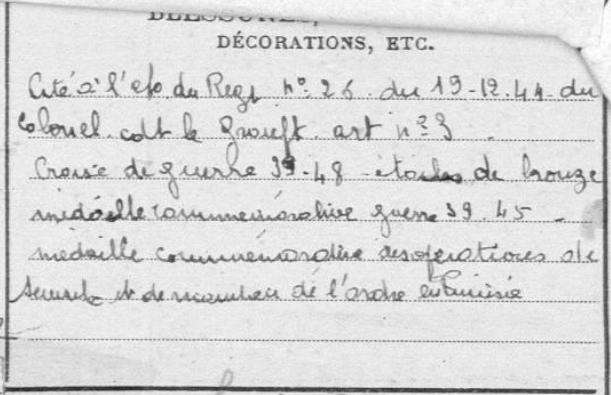 BLESSURES,
DÉCORATIONS, ETC.
Cité à l'o/o du Regt n° 26 du 19-12-44 du
Colonel cdt le groupt art n° 3
Croix de guerre 39-48 étoile de bronze
médaille commémorative guerre 39.45
médaille commémorative des opérations de
sécurité et de maintien de l'ordre en Tunisie